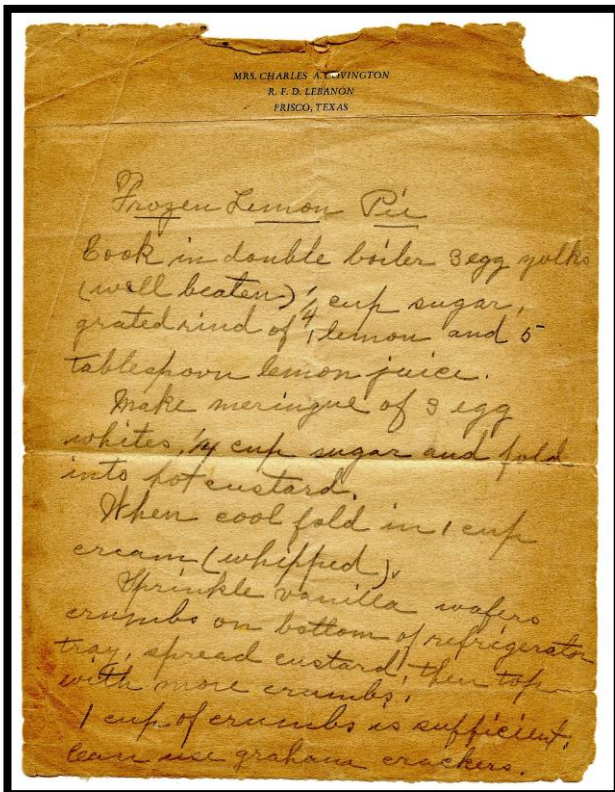 MRS. CHARLES A. COVINGTON
R. F. D. LEBANON
FRISCO, TEXAS
Frozen Lemon Pie
Cook in double boiler 3 egg yolks
(well beaten) 1/4 cup sugar,
grated rind of 1 lemon and 5
tablespoon lemon juice.
Make meringue of 3 egg
whites, 1/4 cup sugar and fold
into hot custard.
When cool fold in 1 cup
cream (whipped).
Sprinkle vanilla wafers
crumbs on bottom of refrigerator
tray, spread custard, then top
with more crumbs.
1 cup of crumbs is sufficient.
Can use graham crackers.